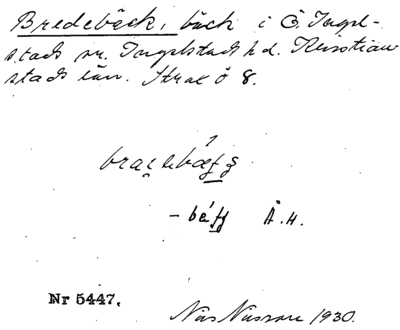 Bredebäck, bäck i Ö. Ingel-
stads sn. Ingelstads hd. Kristian
stads län. Strae ö 8.
bradebæ
- bé Å.H.
Nr 5447.
Nils Nilsson 1930.